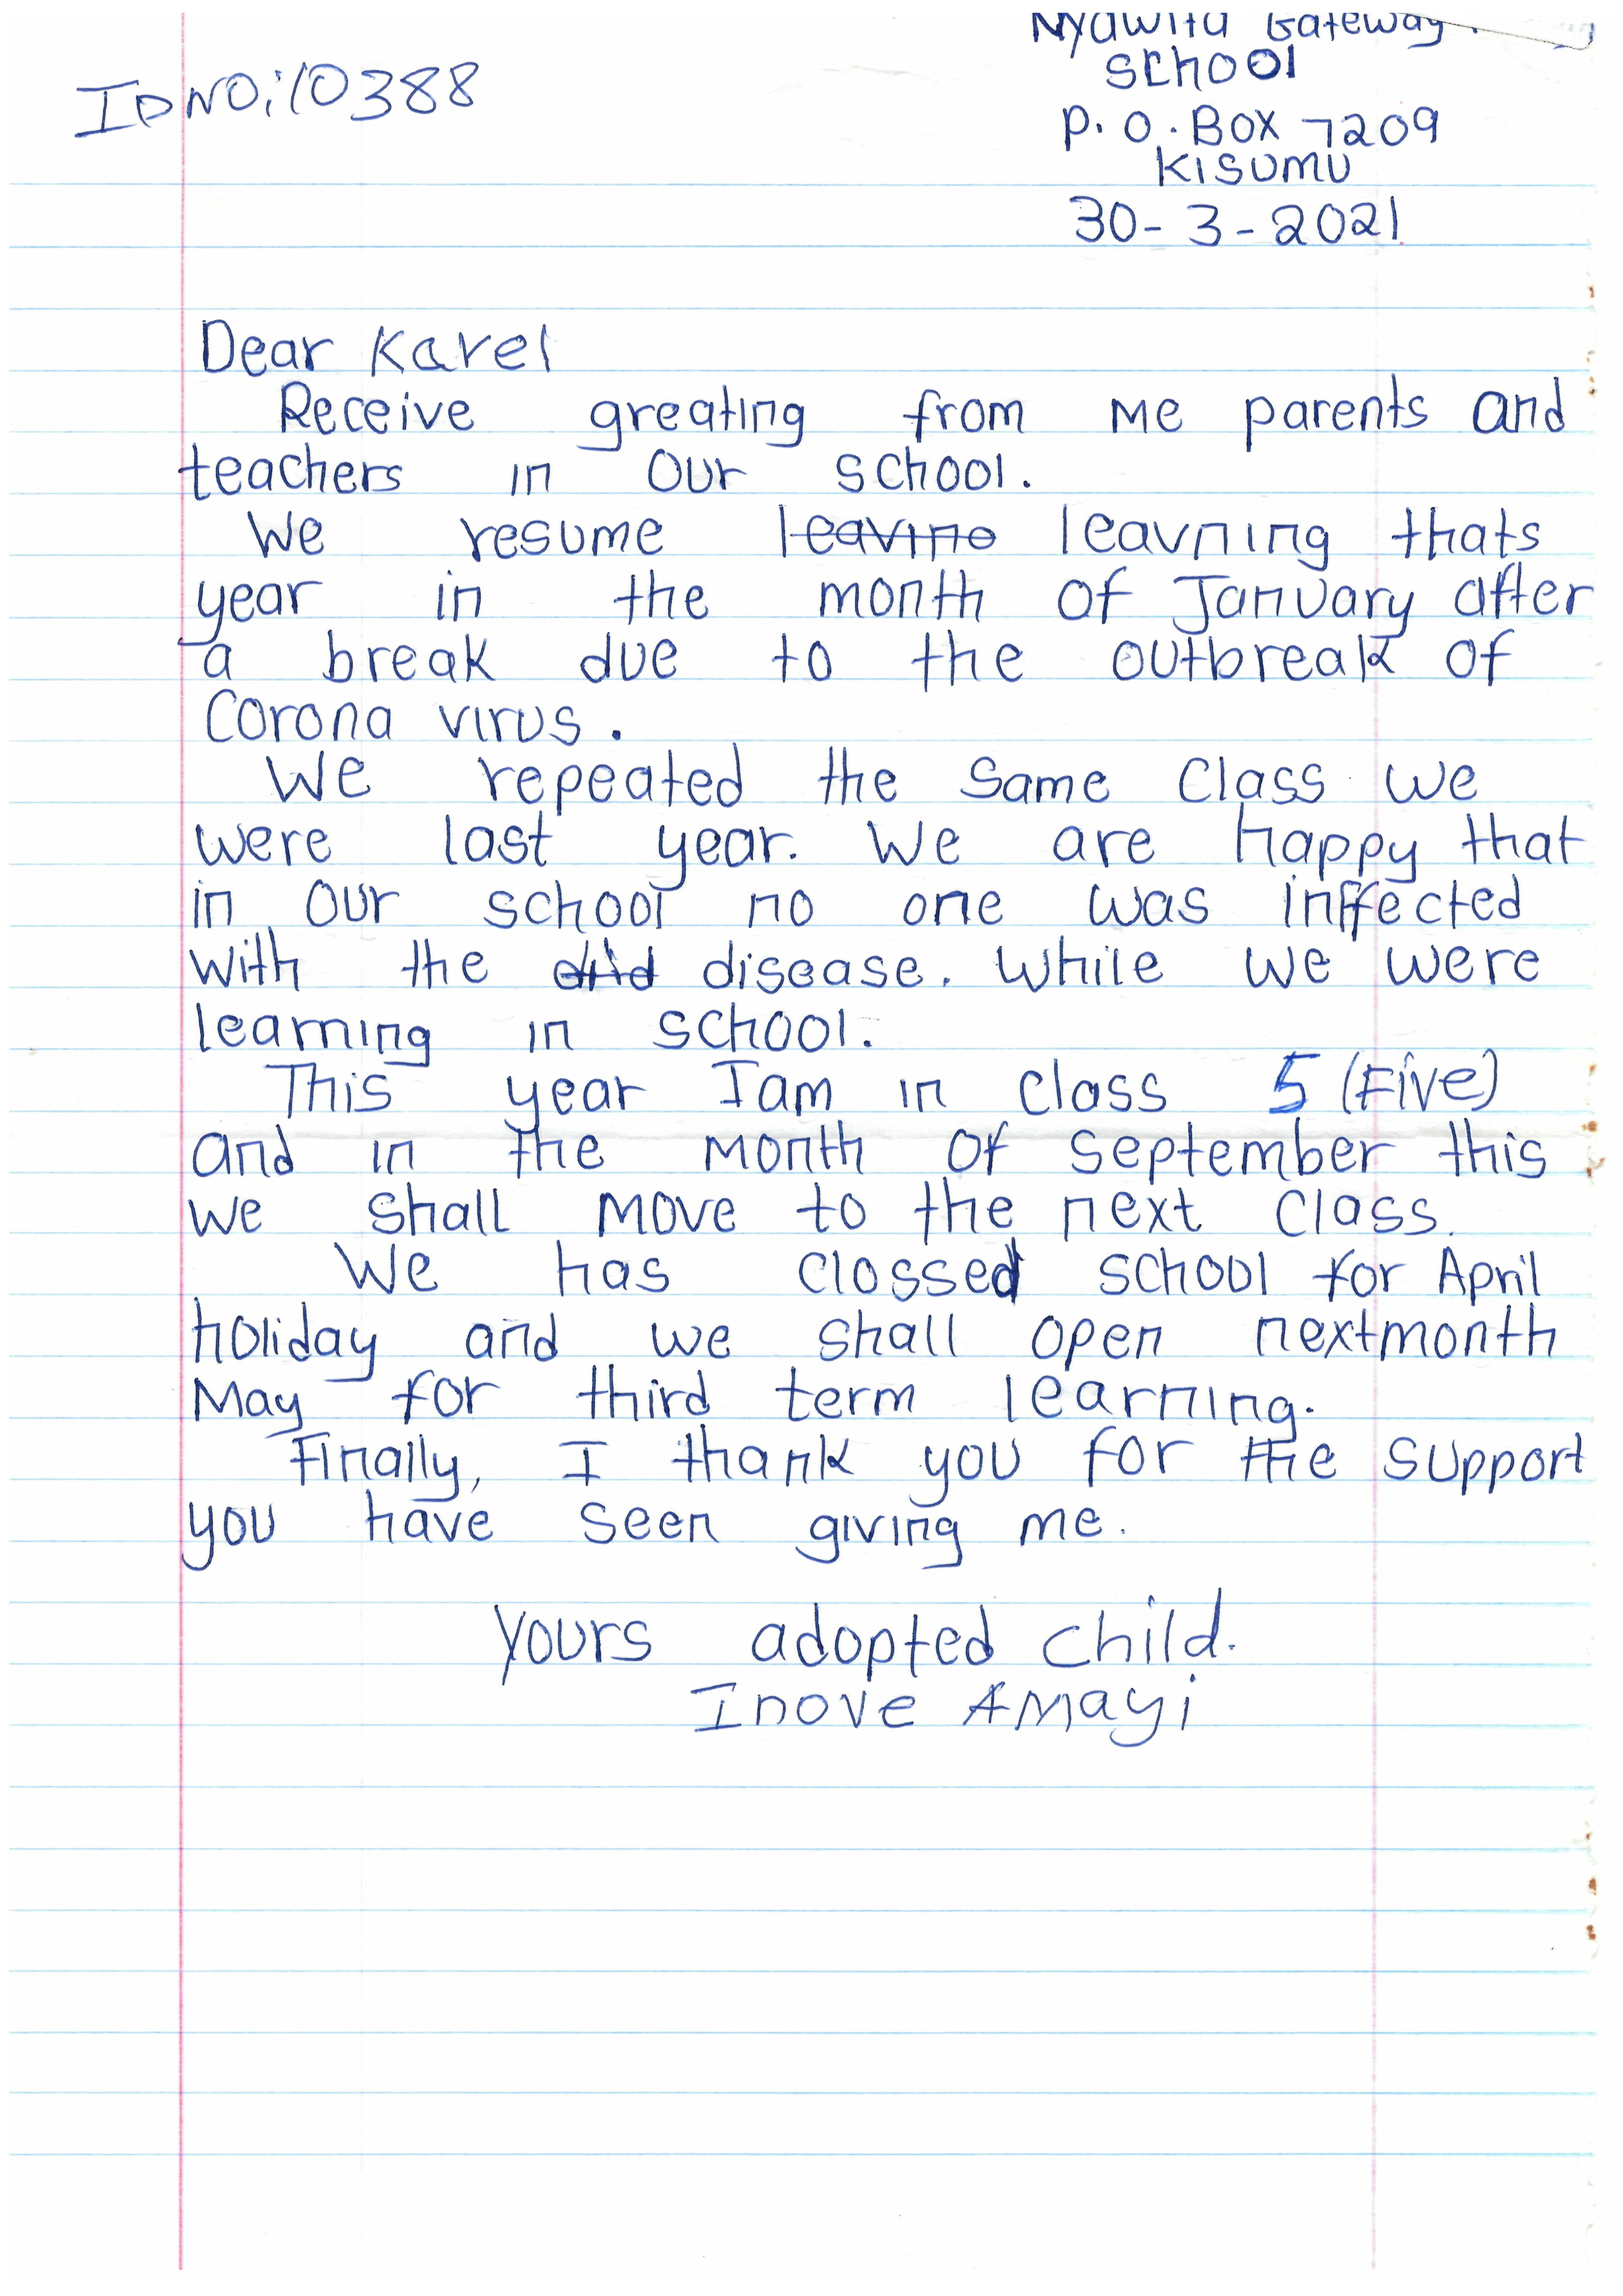 Nyawita Gateway
School
P.O.Box 7209
Kisumu
30-3-2021
ID NO: 10388
Dear Karel
Receive greating from me parents and
teachers in our school.
We resume leavning thats
year in the month of January after
a break due to the outbreak of
Corona virus.
We repeated the same class we
were last year. We are happy that
in our school no one was inffected
with the disease. While we were
learning in school.
This year I am in class 5 (Five)
and in the month of september this
we shall move to the next class.
We has clossed school for April
holiday and we shall open nextmonth
May for third term learning.
Finally, I thank you for the support
you have seen giving me.
Yours adopted child.
Inove Amayi